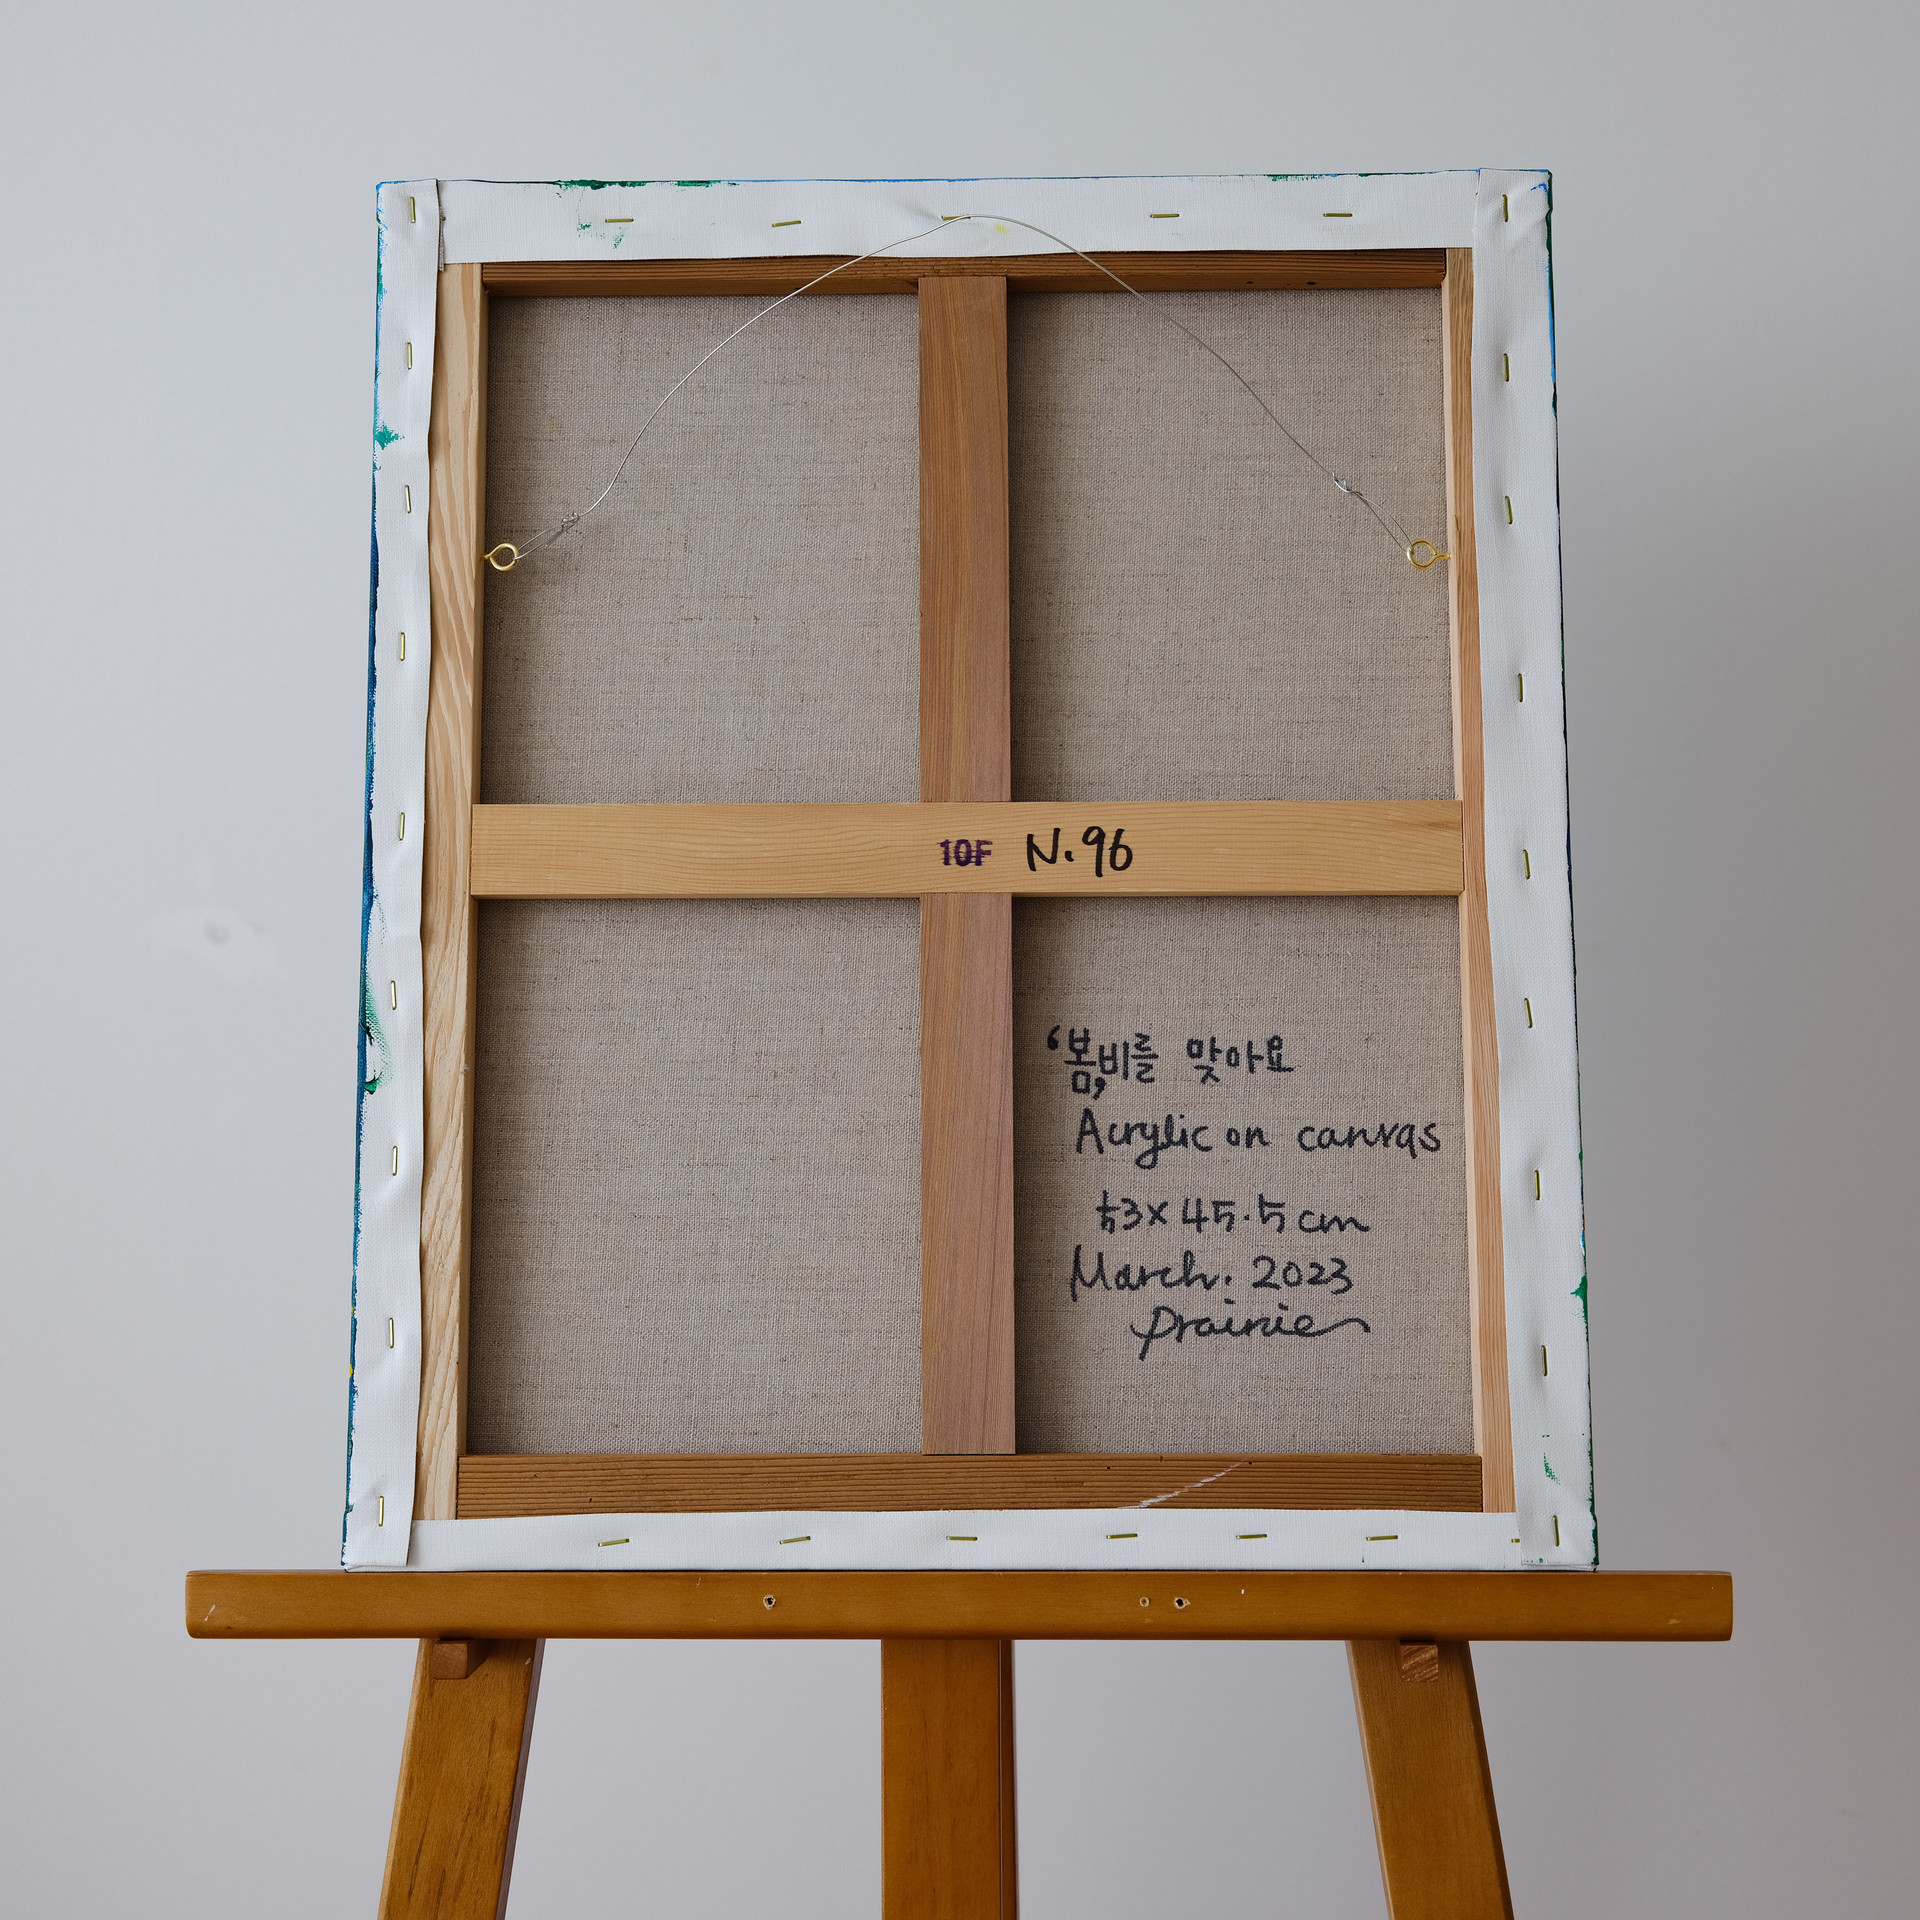 10F N.96
‘봄,비를 맞아요
Acrylic on canvas
53x45.5cm
March. 2023
prairie